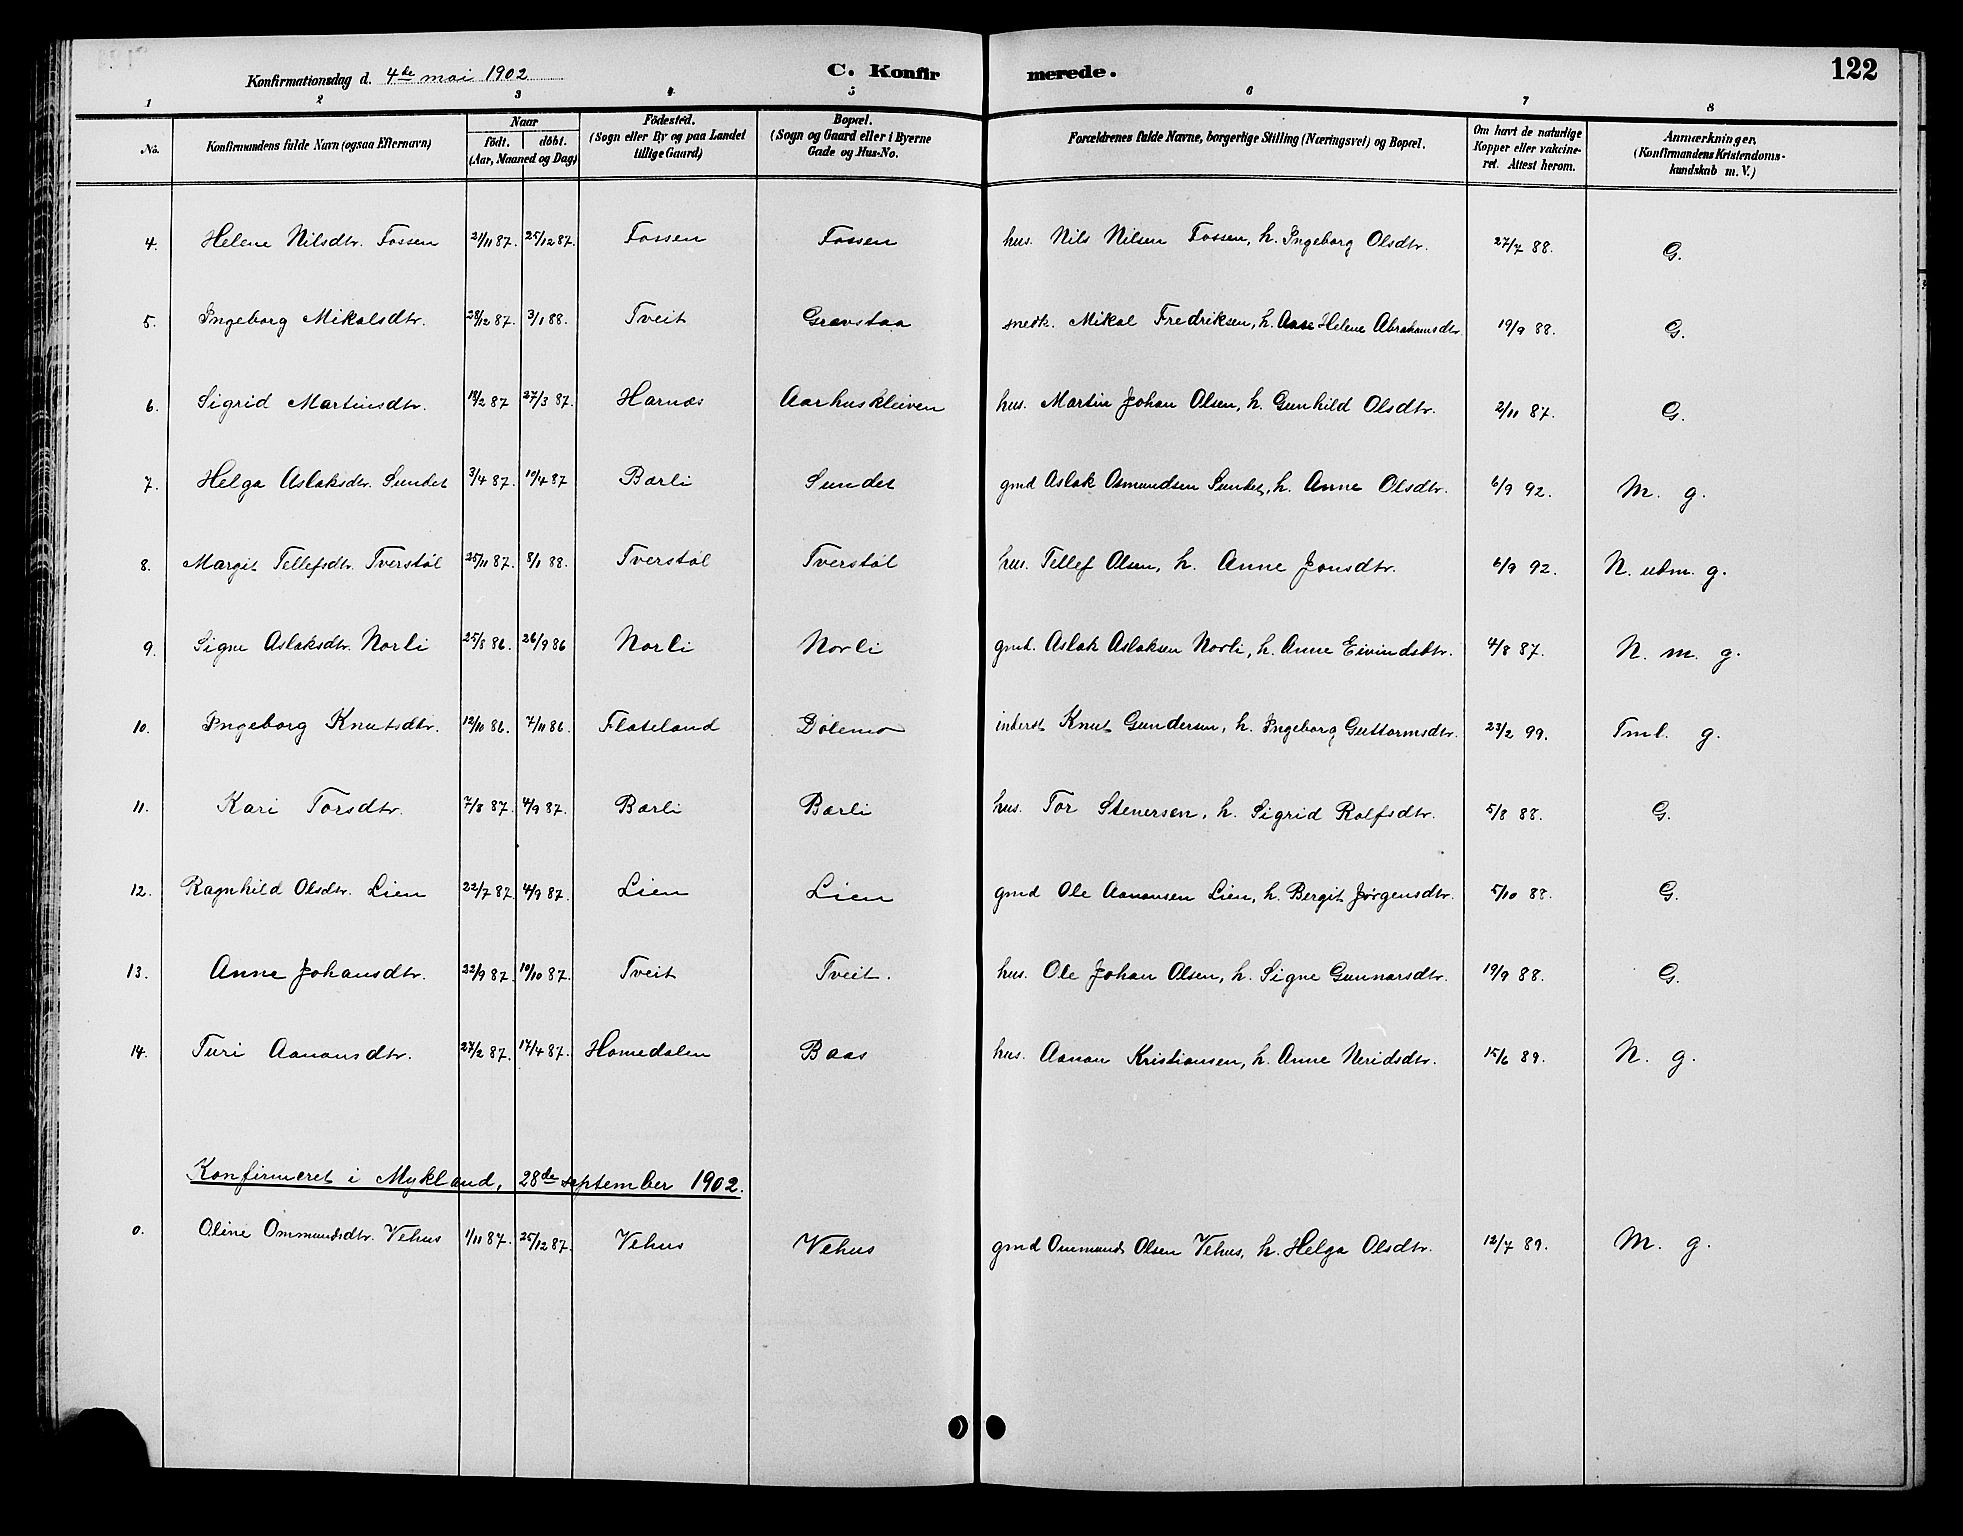 Konfirmationsdag d. 4de mai 1902 C. Konfirmerede. 122
1 2 3 4 5 6 7 8
No. Konfirmandens fulde Navn (ogsaa Efternavn) Naar født. døbt. (Aar, Maaned og Dag) Fødested. (Sogn eller By og paa Landet tillige Gaard) Bopæl. (Sogn og Gaard eller i Byerne Gade og Hus-No. Forældrenes fulde Navne, borgerlige Stilling (Næringsvei) og Bopæl. Om havt de naturlige Kopper eller vakcineret. Attest herom. Anmærkninger. (Konfirmandens Kristendomskundskab m. V.)
4. Helene Nilsdtr. Fossen 21/11 87. 25/12 87. Fossen Fossen hus. Nils Nilsen Fossen, h. Ingeborg Olsdtr. 27/7 88. G.
5. Ingeborg Mikalsdtr. 28/12 87. 3/1 88. Tveit Gravstaa snedk. Mikal Fredriksen, h. Aase Helene Abrahamsdtr 19/9 88. G.
6. Sigrid Martinsdtr. 18/2 87 27/3 87. Harnæs Aarhuskleiven hus. Martin Johan Olsen, h. Gunhild Olsdtr. 2/11 87. G.
7. Helga Aslaksdtr. Sundet 3/4 87. 10/4 87 Barli Sundet gmd Aslak Osmundsen Sundet, h. Anne Olsdtr. 6/9 92. M. g.
8. Margit Tellefsdtr. Tverstøl 25/11 87. 8/1 88. Tverstøl Tverstøl hus. Tellef Olsen, h. Anne Jonsdtr. 6/9 92. N. udm. g.
9. Signe Aslaksdtr. Norli 25/8 86. 26/9 86 Norli Norli gmd. Aslak Aslaksen Norli, h. Anne Eivindsdtr. 4/8 87. N. m. g.
10. Ingeborg Knutsdtr. 12/10 86. 7/11 86. Flateland Dølemo inderst Knut Gundersen, h. Ingeborg Guttormsdtr. 23/2 99. Tml. g.
11. Kari Torsdtr. 7/8 87. 4/9 87. Barli Barli hus. Tor Stenersen, h. Sigrid Rolfsdtr. 5/8 88. G.
12. Ragnhild Olsdtr. Lien 22/7 87. 4/9 87. Lien Lien gmd Ole Aanonsen Lien, h. Bergit Jørgensdtr. 5/10 88. G.
13. Anne Johansdtr. 22/9 87. 10/10 87. Tveit Tveit. hus. Ole Johan Olsen, h. Signe Gunnarsdtr. 19/9 88. G.
14. Turi Aanonsdtr. 27/2 87. 17/4 87. Homedalen Baas hus. Aanon Kristiansen, h. Anne Neridsdtr. 15/6 89. N. g.
Konfirmeret i Mykland, 28de september 1902.
0. Oline Ommundsdtr. Vehus 1/11 87. 25/12 87. Vehus Vehus gmd Ommund Olsen Vehus, h. Helga Olsdtr. 12/7 89. M. g.